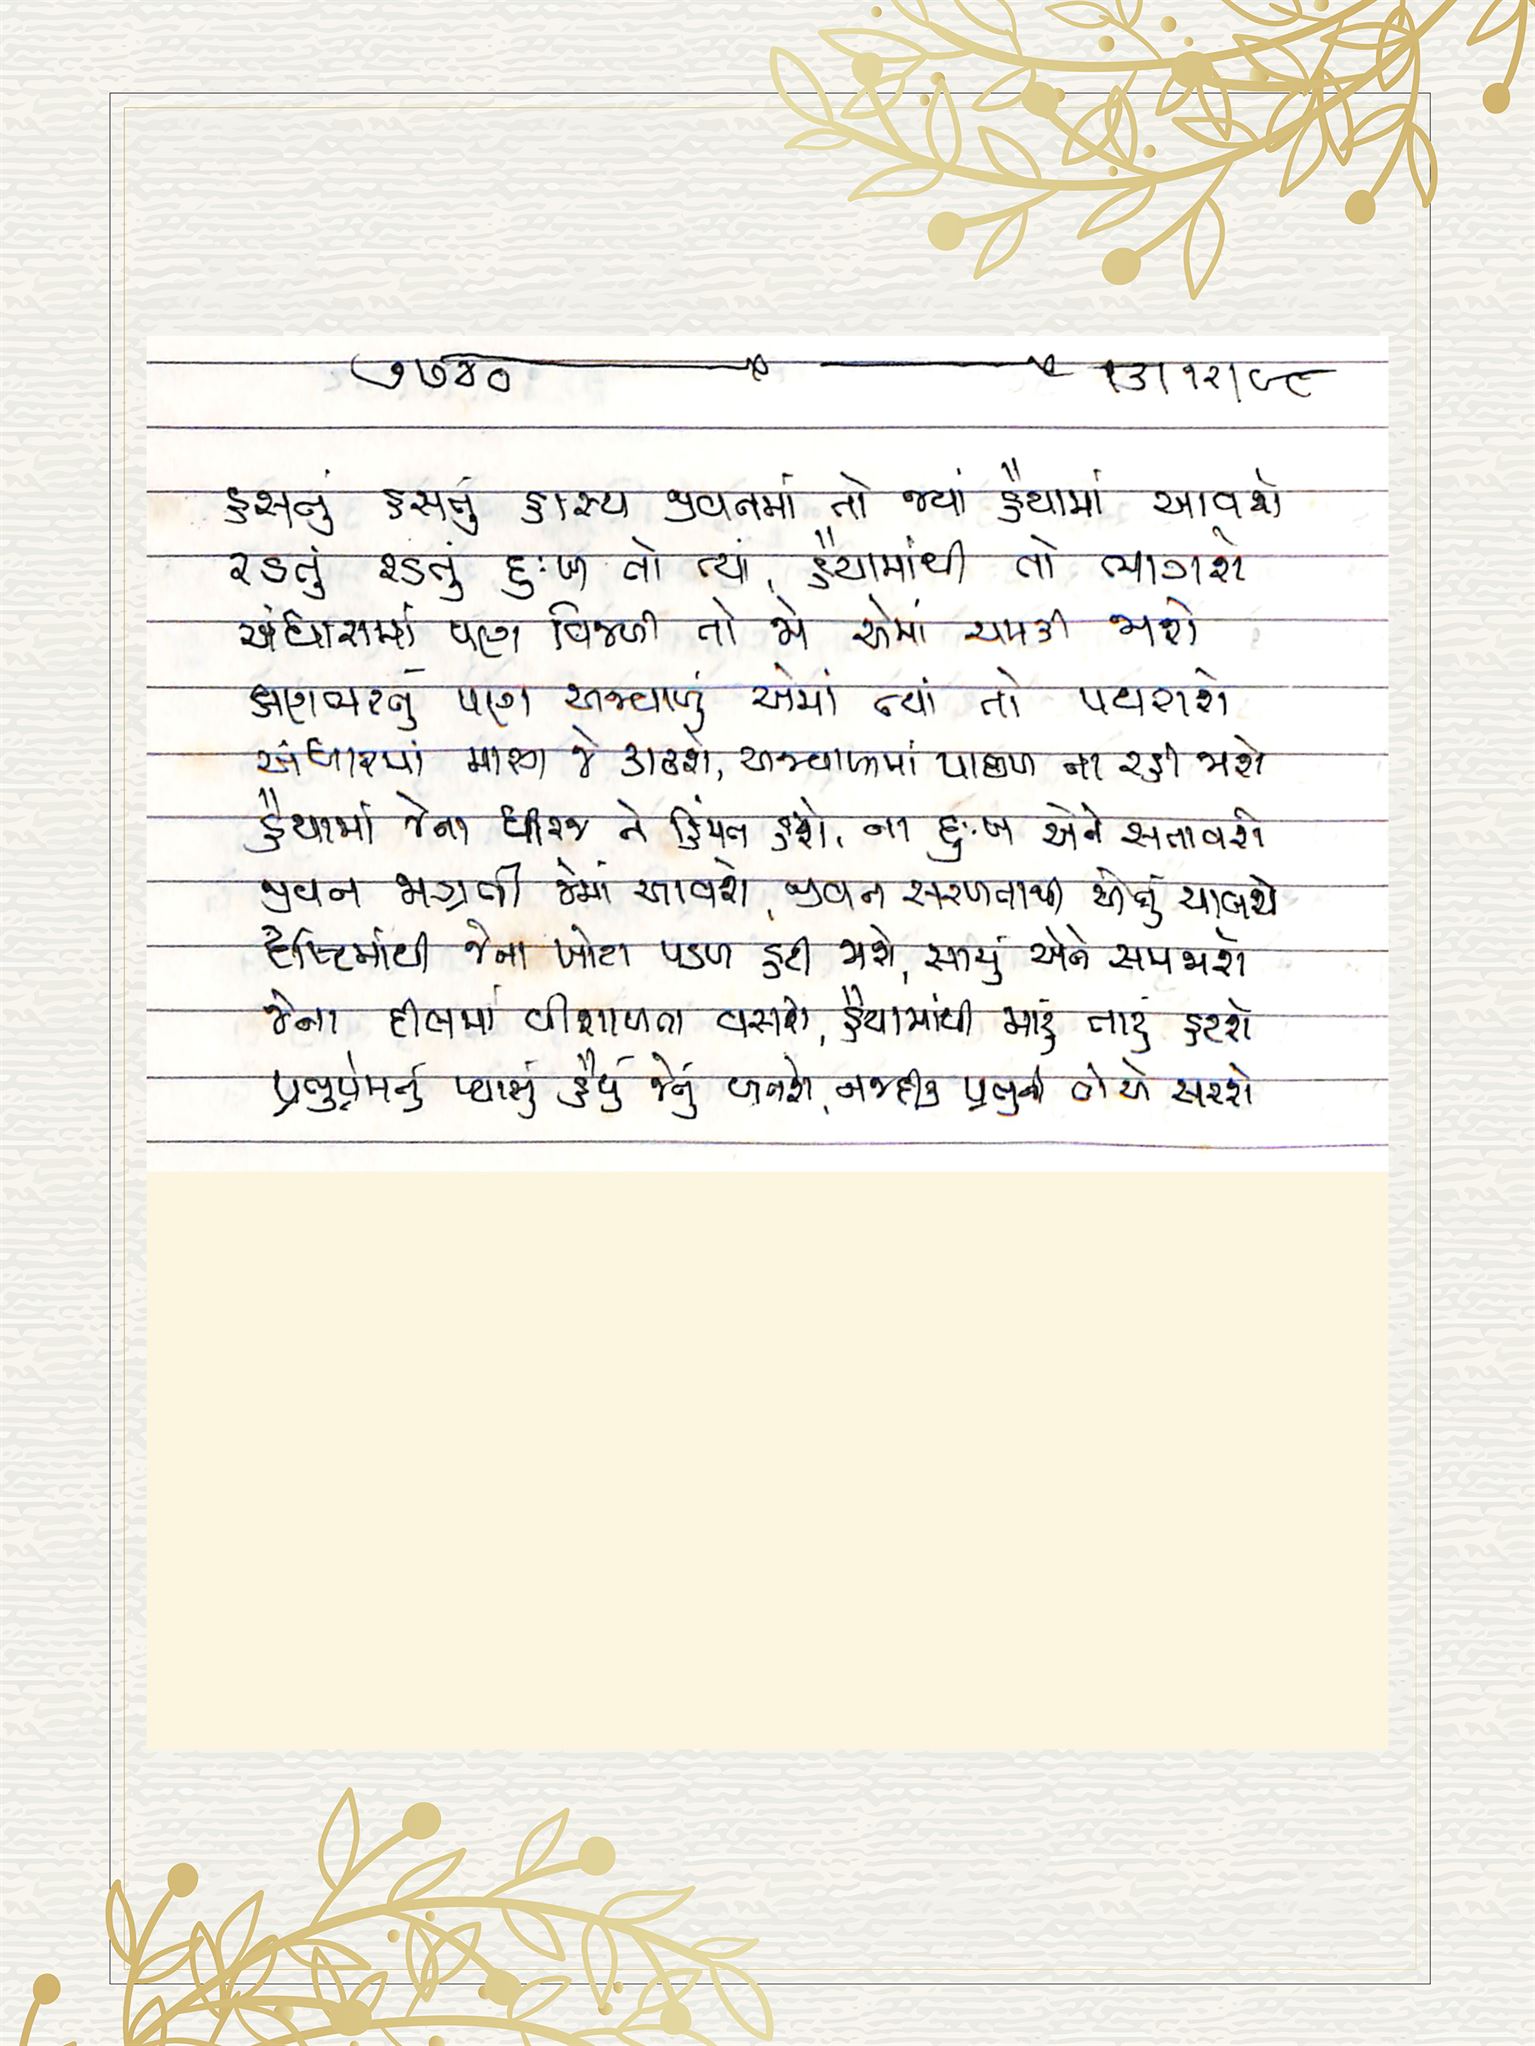 ૭૭૪૦ ૧૩।૧૨।૯૮
હસતું હસતું હાસ્ય જીવનમાં તો જ્યાં હૈયામાં આવશે
રડતું રડતું દુઃખ તો ત્યાં, હૈયામાંથી તો ભાગશે
અંધારામાં પણ વિજળી તો જો એમાં ચમકી જાશે
ક્ષણભરનું પણ અજવાળું એમાં ત્યાં તો પથરાશે
અંધારામાં મારગ જે કાઢશે, અજવાળામાં પાછળ ના રહી જાશે
હૈયામાં જેના ધીરજ ને હિંમત હશે, ના દુઃખ એને સતાવશે
જીવન જાગૃતી જેમાં આવશે, જીવન સરળતાથી એનું ચાલશે
દૃષ્ટિમાંથી જેના ખોટા પડળ હટી જાશે, સાચું એને સમજાશે
જેના દીલમાં વીશાળતા વસશે, હૈયામાંથી મારું તારું હટશે
પ્રભુપ્રેમનું પ્યાસું હૈયું જેનું બનશે, નજદીક પ્રભુની એ સરશે